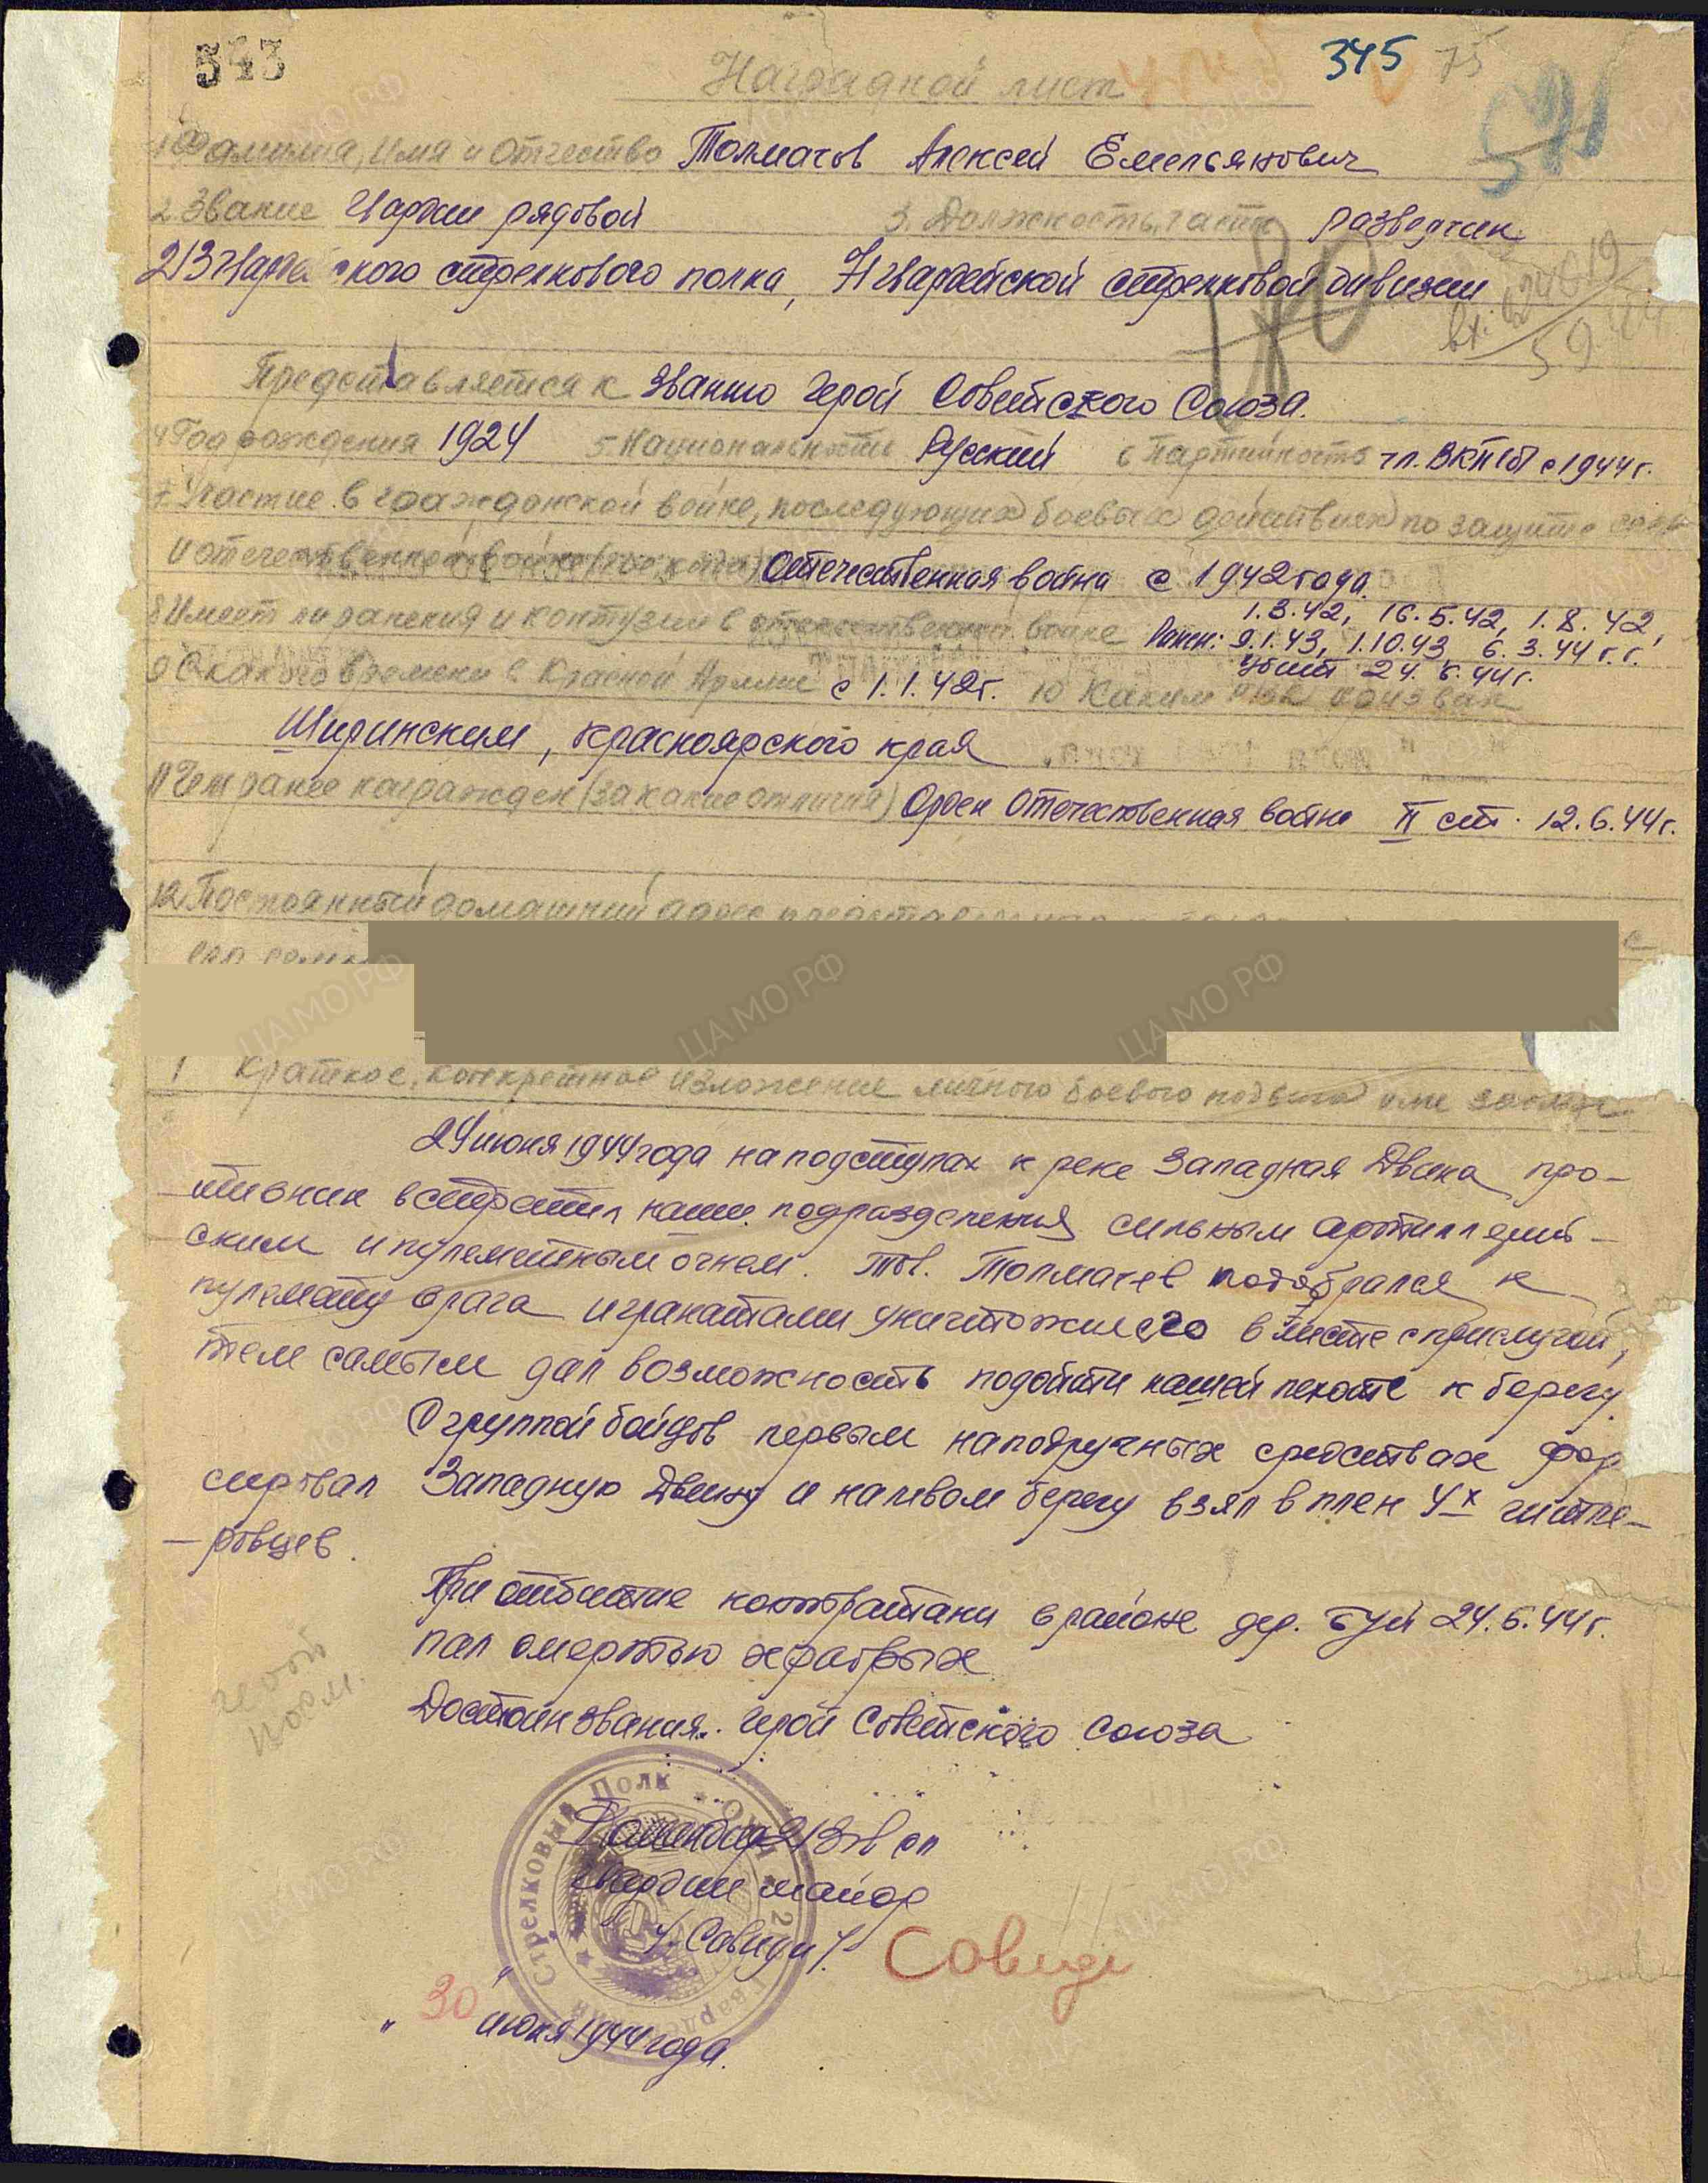 543
345 75
Наградной лист
591
1 Фамилия, имя и Отчество Толмачов Алексей Емельянович
2. Звание Гвардии рядовой 3. Должность, часть разведчик
213 гварде ского стрелкового полка, 71 гвардейской стрелковой дивизии
Представляется к званию Герой Советского Союза.
4 Год рождения 1924 5. Национальность Русский 6 Партийность чл. ВКП(б) с 1944 г.
7. Участие в гражданской войне, последующих боевых действиях по защите ссср
и отечественной войне Отечественная война с 1942 года.
8 Имеет ли ранения и контузии в отечественной войне Ранен: 1.3.42, 16.5.42, 1.8.42,
9.1.43, 1.10.43 6.3.44 г.г.
убит 24.6.44 г.
9 С какого времени в Красной Армии с 1.1.42г. 10 Каким РВК призван
Ширинским, Красноярского края
11 Чем ранее награжден (за какие отличия) Орден Отечественная война II ст. 12.6.44 г.
12. Постоянный домашний адрес
его семьи
Краткое, конкретное изложение личного боевого подвига или заслуг
24 июня 1944 года на подступах к реке Западная Двина про-
тивник встретил наши подразделения сильным артиллерий-
ским и пулеметным огнем. Тов. Толмачев подобрался к
пулемету врага и гранатами уничтожил его вместе с прислугой,
тем самым дал возможность подойти нашей пехоте к берегу.
С группой бойцов первым на подручных средствах фор
сировал Западную Двину и на левом берегу взял в плен 4х гитле-
-ровцев.
При отбитие контратаки в районе дер. Буй 24.6.44 г.
пал смертью храбрых
Достоин звания Герой Советского Союза
герой
посм.
Командир 213 гв сп
гвардии майор
/Савиди/.
Савиди
Стрелковый Полк
" 30 " июня 1944 года.